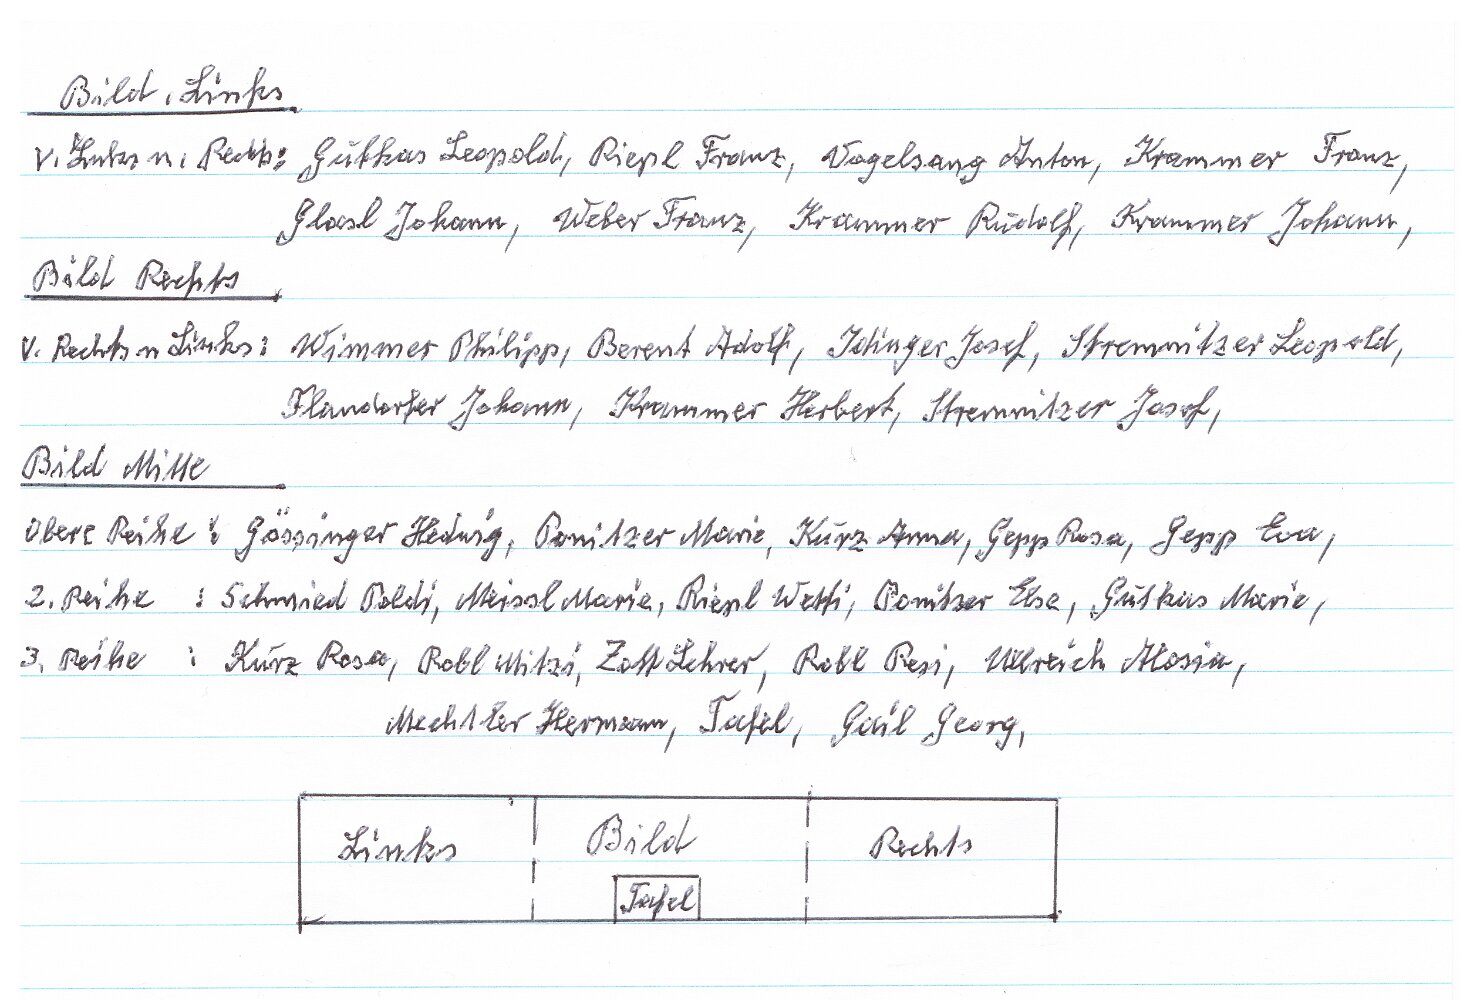 Bild Links
v. Links n. Rechts: Gutkas Leopold, Riepl Franz, Vogelsang Anton, Krammer Franz,
Glasl Johann, Weber Franz, Krammer Rudolf, Krammer Johann,
Bild Rechts
v. Rechts n Links: Wimmer Philipp, Berent Adolf, Idinger Josef, Stremnitzer Leopold,
Flandorfer Johann, Krammer Herbert, Stremnitzer Josef,
Bild Mitte
Obere Reihe: Gössinger Hedwig, Ponitzer Marie, Kurz Anna, Gepp Rosa, Gepp Eva,
2. Reihe : Schmied Poldi, Meissl Marie, Riepl Wetti, Ponitzer Else, Gutkas Marie,
3. Reihe : Kurz Rosa, Robl Mitzi, Zott Lehrer, Robl Resi, Ullreich Aloisia,
Mechtler Hermann, Tafel, Gail Georg,
Links Bild Rechts
Tafel